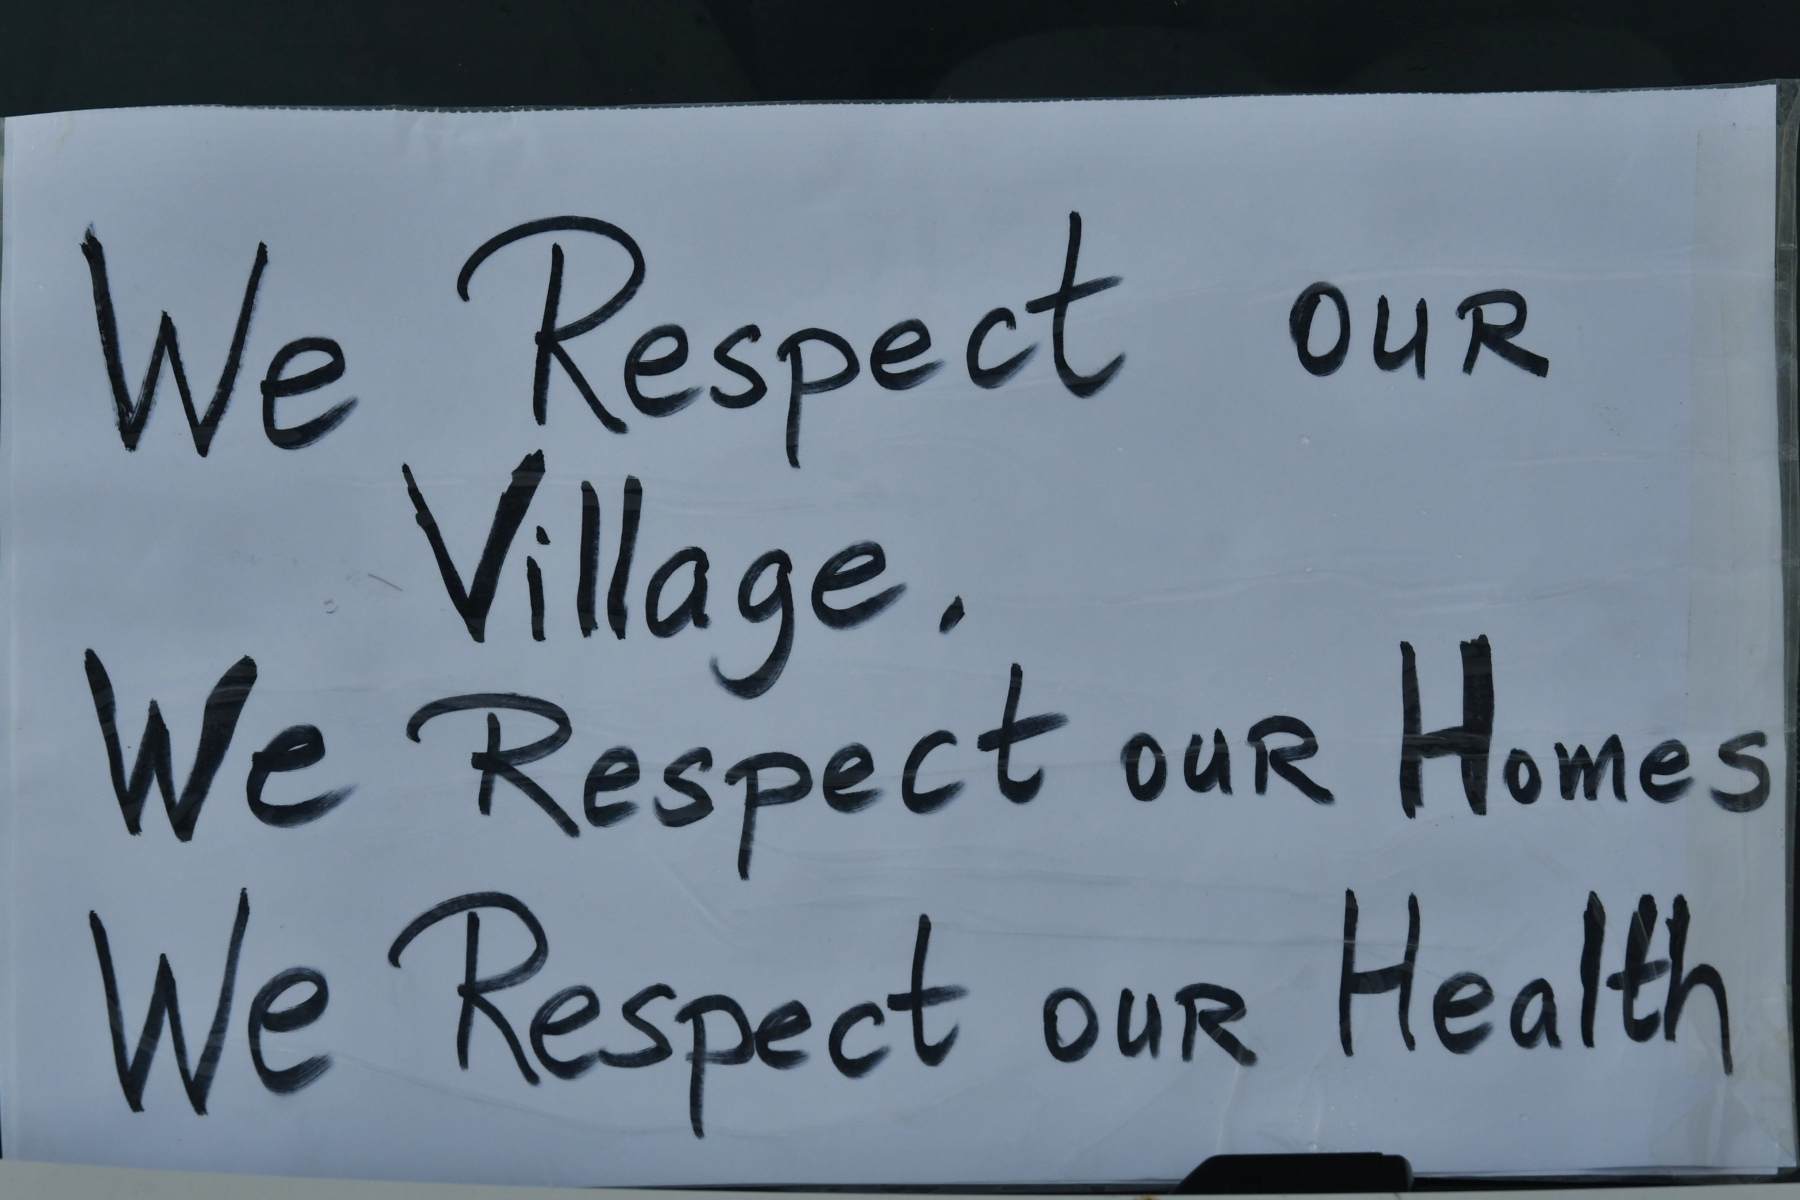 We Respect OUR
Village.
We Respect OUR Homes
We Respect OUR Health